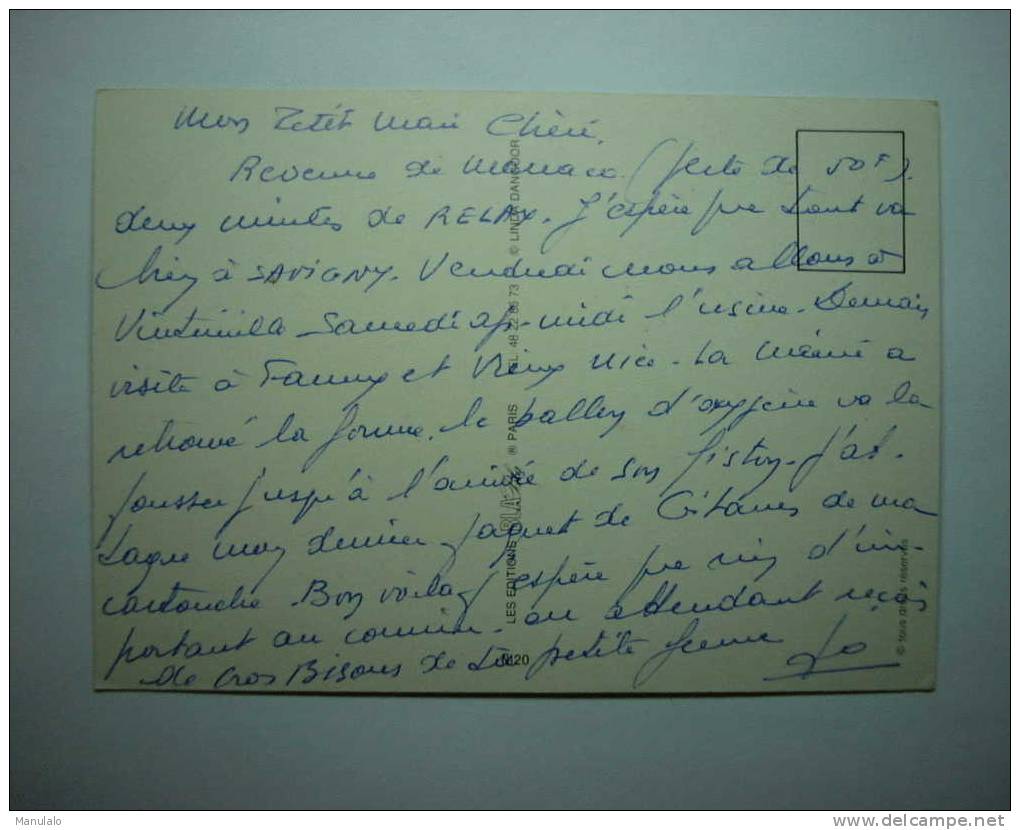 Mon Petit Mari Chéri,
Revenue de Monaco. (perte de 50F).
deux minutes de RELAX. J'espère que tout va
bien à SAVIGNY. Vendredi nous allons à
Vintimila Samedi ap-midi l'usine. Demain
visite à Fanny et Vieux Nice. La mémé a
retrouvé la forme. le ballon d'oxygène va la
pousser jusqu'à l'arrivée de son fiston. J'at-
taque mon dernier paquet de Gitanes de ma
cartouche. Bon voilà j'espère que rien d'im-
portant au courrier. en attendant reçois
de Gros Bisous de ta petite femme Jo
LES EDITIONS ® PARIS TEL. 48 22 66 73 © LINDA DANGOOR
M20
© tous droits réservés
Manulalo
www.delcampe.net